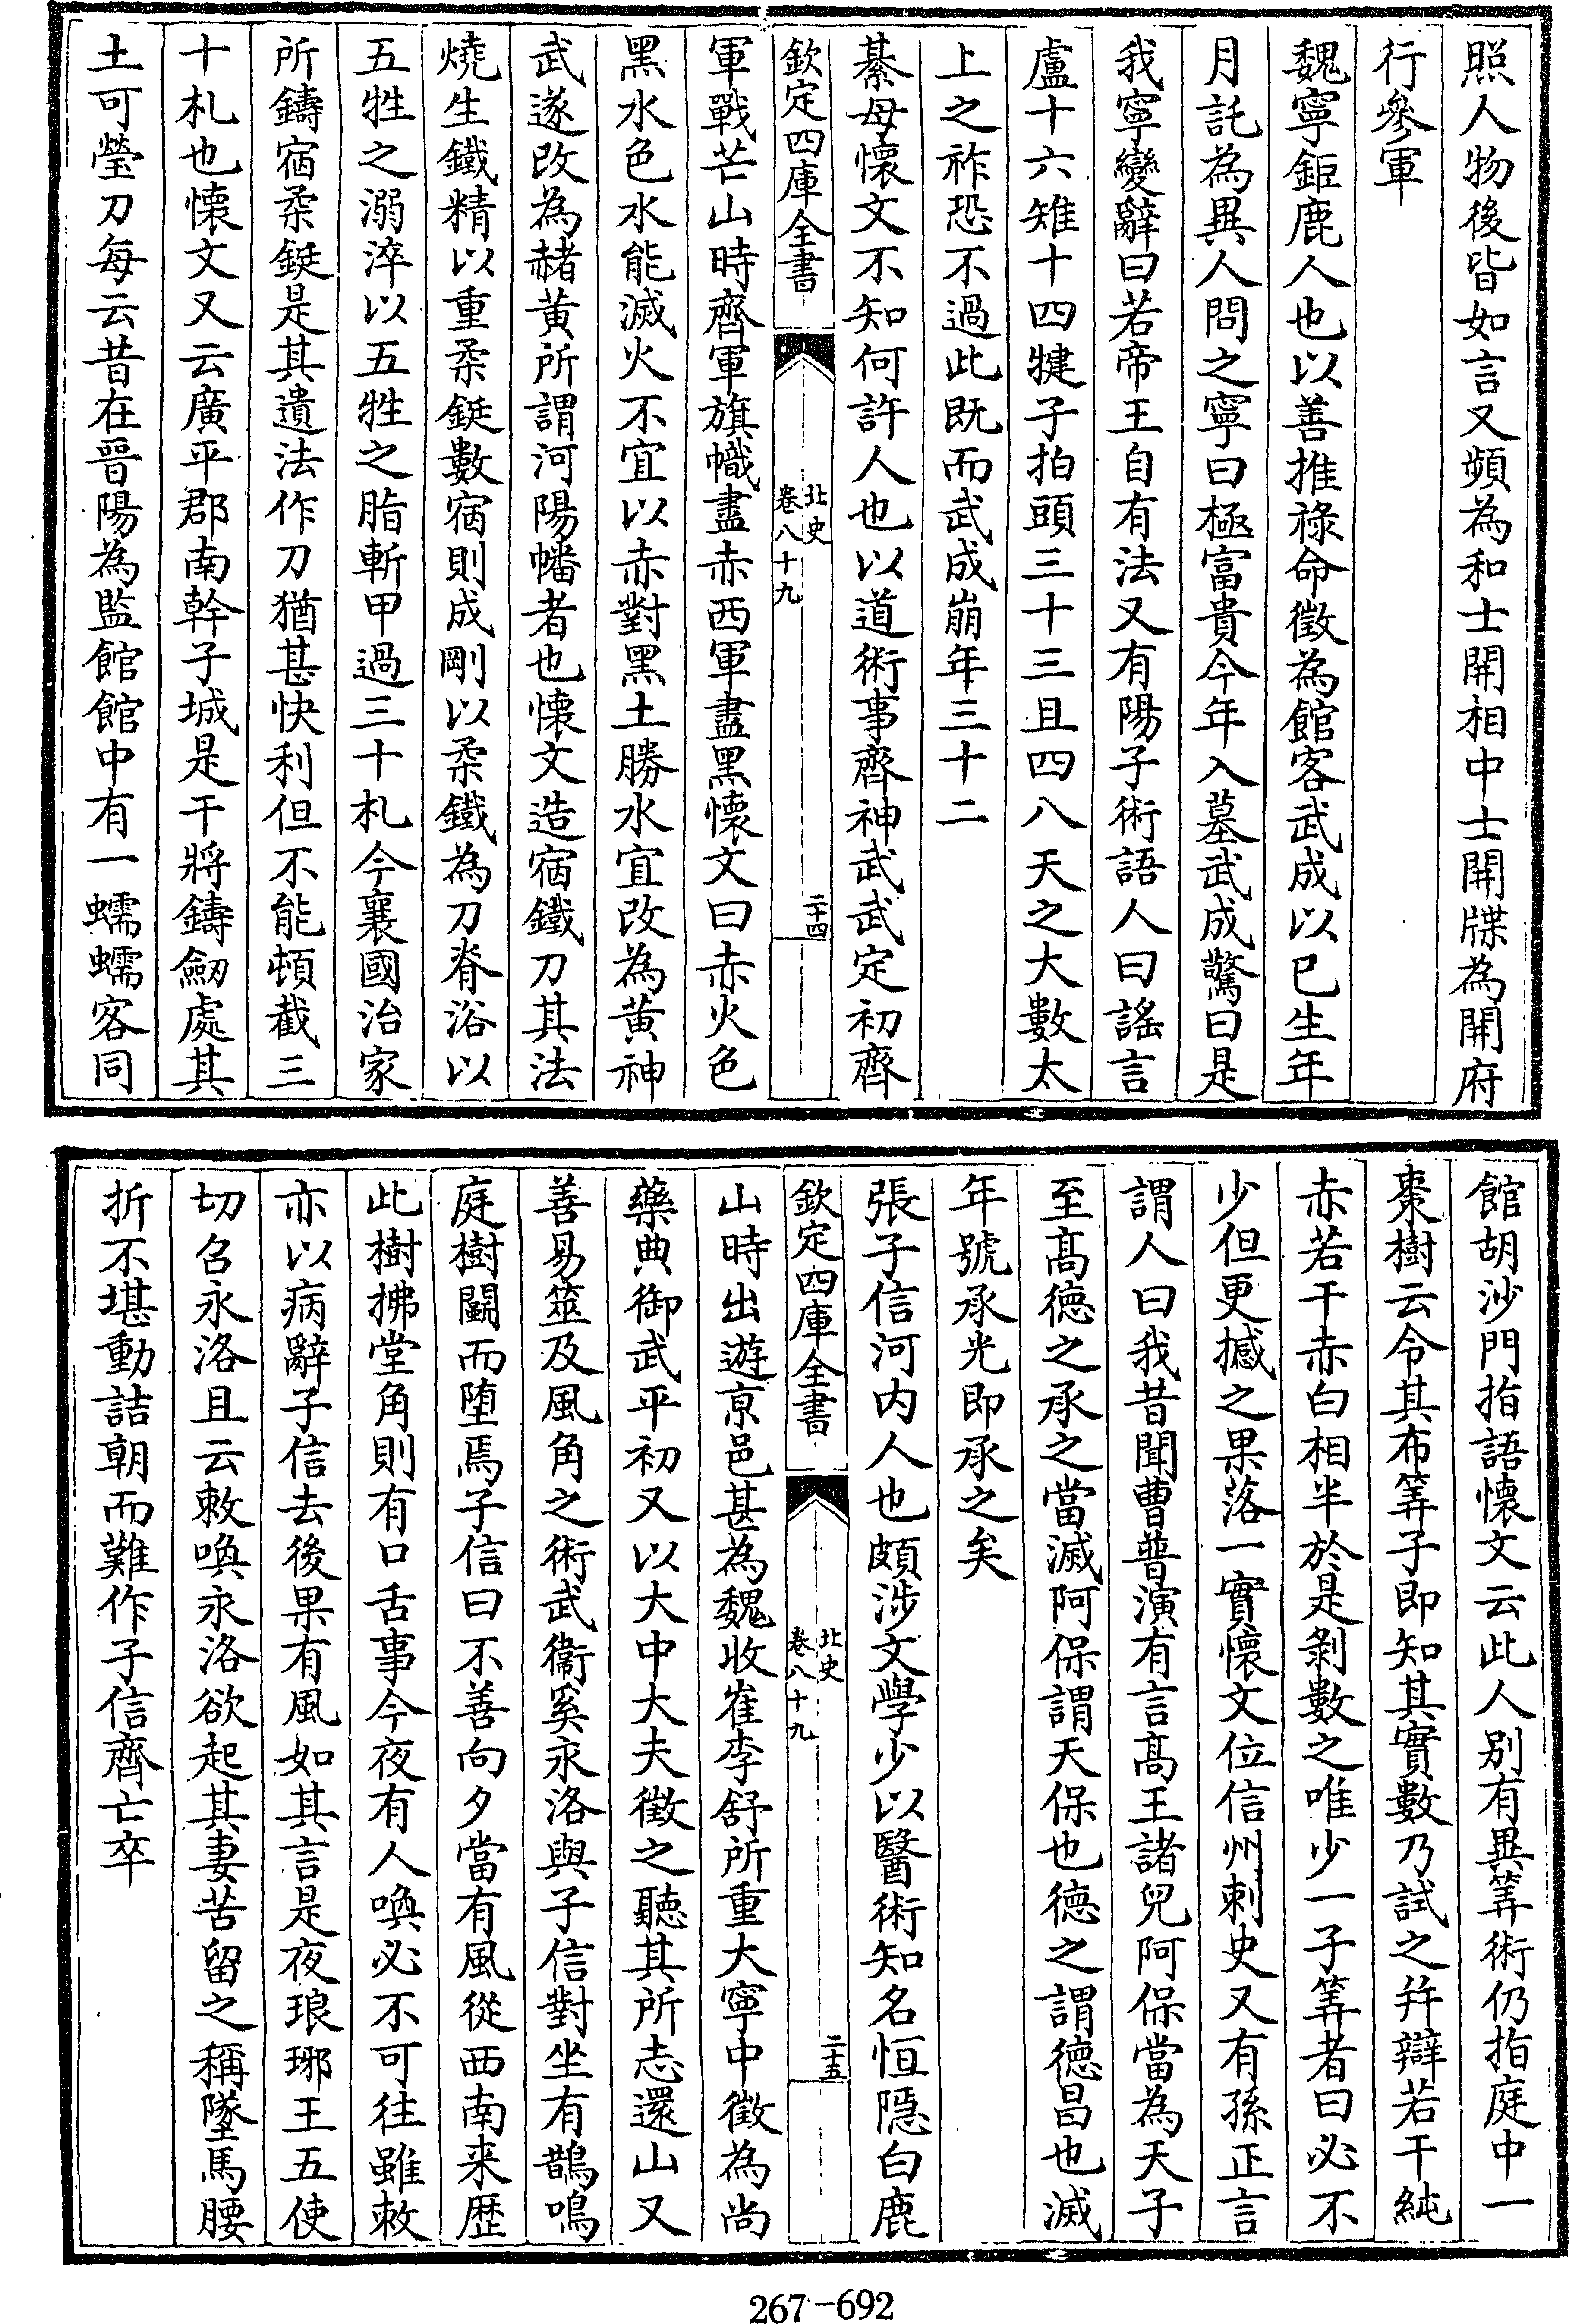 照人物後皆如言又頻為和士開相中士開牒為開府
行參軍
魏寧鉅鹿人也以善推祿命徵為館客武成以己生年
月託為異人問之寧曰極富貴今年入墓武成驚曰是
我寧變辭曰若帝王自有法又有陽子術語人曰謠言
盧十六雉十四犍子拍頭三十三且四八天之大數太
上之祚恐不過此既而武成崩年三十二
綦母懷文不知何許人也以道術事齊神武武定初齊
欽定四庫全書
北史
卷八十九
二十四
軍戰芒山時齊軍旗幟盡赤西軍盡黑懷文曰赤火色
黑水色水能滅火不宜以赤對黑土勝水宜改為黃神
武遂改為赭黃所謂河陽幡者也懷文造宿鐵刀其法
燒生鐵精以重柔鋌數宿則成剛以柔鐵為刀脊浴以
五牲之溺淬以五牲之脂斬甲過三十札今襄國治家
所鑄宿柔鋌是其遺法作刀猶甚快利但不能頓截三
十札也懷文又云廣平郡南幹子城是干將鑄劒處其
土可瑩刀每云昔在晉陽為監館館中有一蠕蠕客同
館胡沙門指語懷文云此人別有異筭術仍指庭中一
棗樹云令其布筭子即知其實數乃試之幷辯若干純
赤若干赤白相半於是剝數之唯少一子筭者曰必不
少但更撼之果落一實懷文位信州刺史又有孫正言
謂人曰我昔聞曹普演有言髙王諸兒阿保當為天子
至髙德之承之當滅阿保謂天保也德之謂德昌也滅
年號承光即承之矣
張子信河內人也頗涉文學少以醫術知名恒隱白鹿
欽定四庫全書
北史
卷八十九
二十五
山時出遊京邑甚為魏收崔李舒所重大寧中徵為尚
藥典御武平初又以大中大夫徵之聽其所志還山又
善易筮及風角之術武衞奚永洛與子信對坐有鵲鳴
庭樹鬭而墮焉子信曰不善向夕當有風從西南来歴
此樹拂堂角則有口舌事今夜有人喚必不可往雖敕
亦以病辭子信去後果有風如其言是夜琅琊王五使
切召永洛且云敕喚永洛欲起其妻苦留之稱墜馬腰
折不堪動詰朝而難作子信齊亡卒
267-692